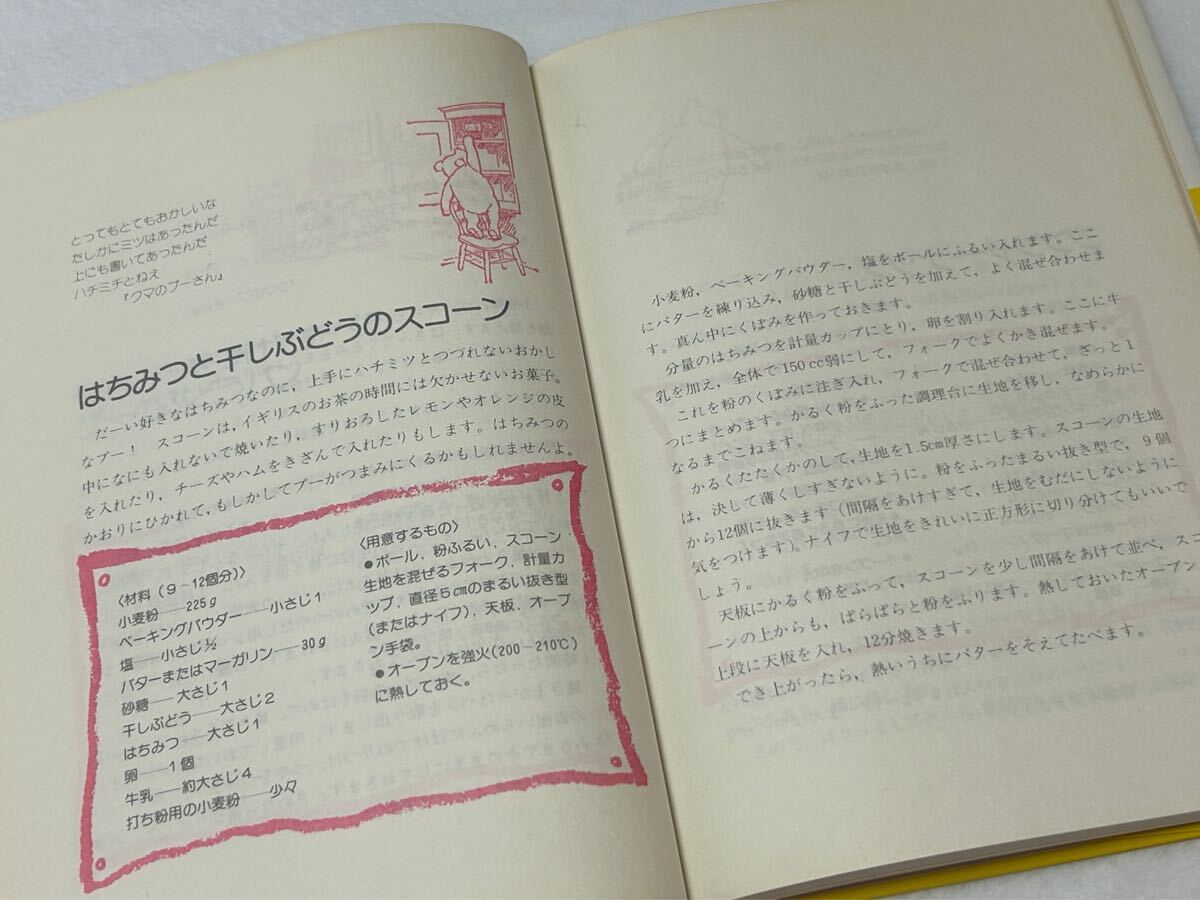 とってもとてもおかしいな
たしかにミツはあったんだ
上にも書いてあったんだ
ハチミチとねえ
『クマのプーさん』
はちみつと干しぶどうのスコーン
だーい好きなはちみつなのに，上手にハチミツとつづれないおかし
なプー！　スコーンは，イギリスのお茶の時間には欠かせないお菓子。
中になにも入れないで焼いたり，すりおろしたレモンやオレンジの皮
を入れたり，チーズやハムをきざんで入れたりもします。はちみつの
かおりにひかれて，もしかしてプーがつまみにくるかもしれませんよ。
〈材料（9～12個分）〉
小麦粉──225g
ベーキングパウダー──小さじ1
塩──小さじ½
バターまたはマーガリン──30g
砂糖──大さじ1
干しぶどう──大さじ2
はちみつ──大さじ1
卵──1個
牛乳──約大さじ4
打ち粉用の小麦粉──少々
〈用意するもの〉
●ボール，粉ふるい，スコーン
生地を混ぜるフォーク，計量カ
ップ，直径5cmのまるい抜き型
(またはナイフ)，天板，オーブ
ン手袋。
●オーブンを強火(200～210℃)
に熱しておく。
小麦粉，ベーキングパウダー，塩をボールにふるい入れます。ここ
にバターを練り込み，砂糖と干しぶどうを加えて，よく混ぜ合わせま
す。真ん中にくぼみを作っておきます。
分量のはちみつを計量カップにとり，卵を割り入れます。ここに牛
乳を加え，全体で150cc弱にして，フォークでよくかき混ぜます。
これを粉のくぼみに注ぎ入れ，フォークで混ぜ合わせて，ざっと1
つにまとめます。かるく粉をふった調理台に生地を移し，なめらかに
なるまでこねます。
かるくたたくかのして，生地を1.5cm厚さにします。スコーンの生地
は，決して薄くしすぎないように。粉をふったまるい抜き型で，9個
から12個に抜きます（間隔をあけすぎて，生地をむだにしないように
気をつけます）。ナイフで生地をきれいに正方形に切り分けてもいいで
しょう。
天板にかるく粉をふって，スコーンを少し間隔をあけて並べ，スコ
ーンの上からも，ぱらぱらと粉をふります。熱しておいたオーブン
上段に天板を入れ，12分焼きます。
でき上がったら，熱いうちにバターをそえてたべます。